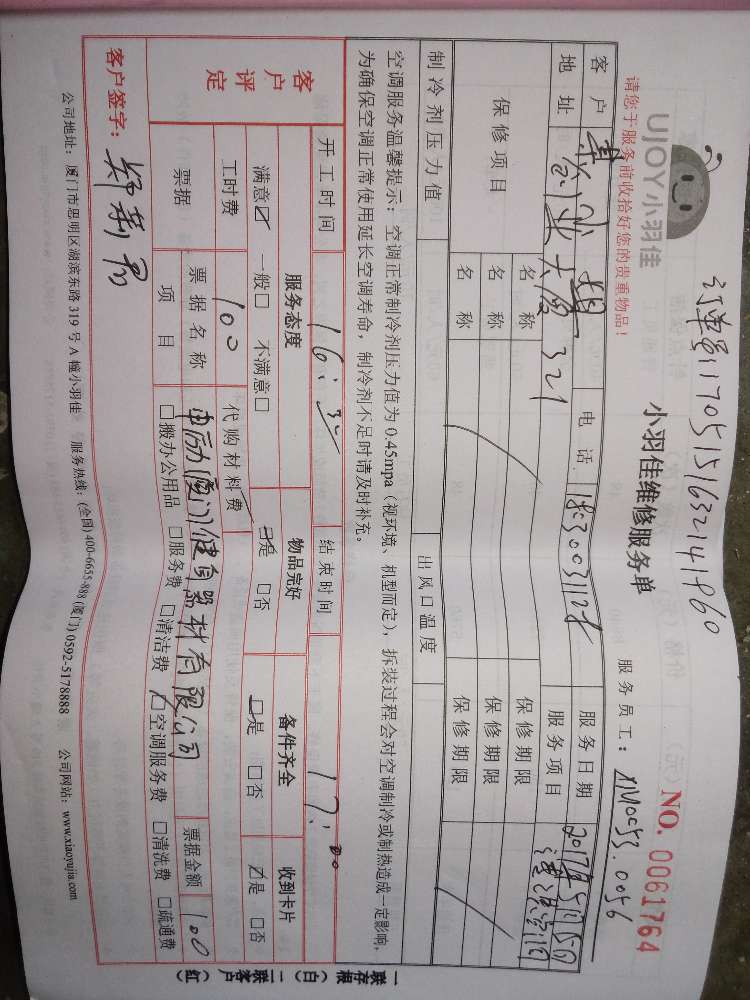 订单号1705151632141960
UJOY小羽佳
小羽佳维修服务单
NO. 0061764
请您于服务前收拾好您的贵重物品!
服务员工: XM0053.0056
客户 电话 1830031128 服务日期 2017年5月15日
地址 大厦321 服务项目
保修项目 名称 保修期限
名称 保修期限
名称 保修期限
制冷剂压力值 出风口温度
空调服务温馨提示: 空调正常制冷剂压力值为 0.45mpa (视环境、机型而定), 拆装过程会对空调制冷或制热造成一定影响,
为确保空调正常使用延长空调寿命, 制冷剂不足时请及时补充。
开工时间 16:30 结束时间 17:00
客户评定 服务态度 物品完好 备件齐全 收到卡片
满意☑ 一般□ 不满意□ ☑是 □否 ☑是 □否 ☑是 □否
工时费 100 代购材料费
票据 票据名称 厦门健身器材有限公司 票据金额 100
项目 □搬办公用品 □服务费 □清洁费 ☑空调服务费 □清洗费 □疏通费
客户签字:
公司地址: 厦门市思明区湖滨东路 319 号 A 幢小羽佳 服务热线: (全国) 400-6655-888 (厦门) 0592-5178888 公司网站: www.xiaoyujia.com
一联存根(白) 二联客户(红)